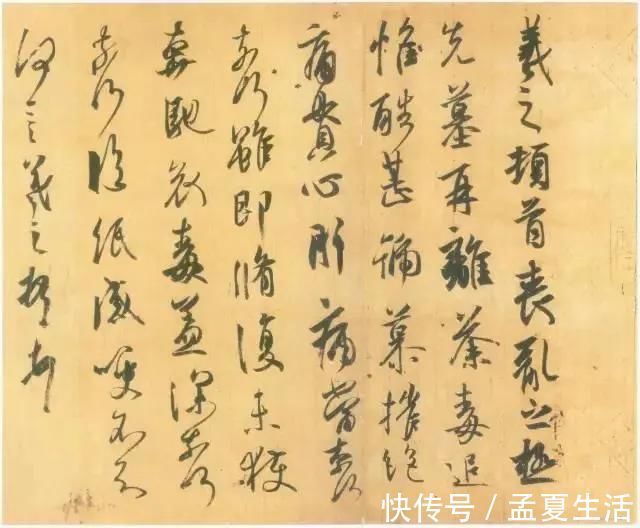 羲之頓首喪亂之極
先墓再離荼毒追
惟酷甚號慕摧絕
痛貫心肝痛當奈何
奈何雖即脩復未獲
奔馳哀毒益深奈何
奈何臨紙感哽不知
何言羲之頓首頓首
快传号 / 孟夏生活